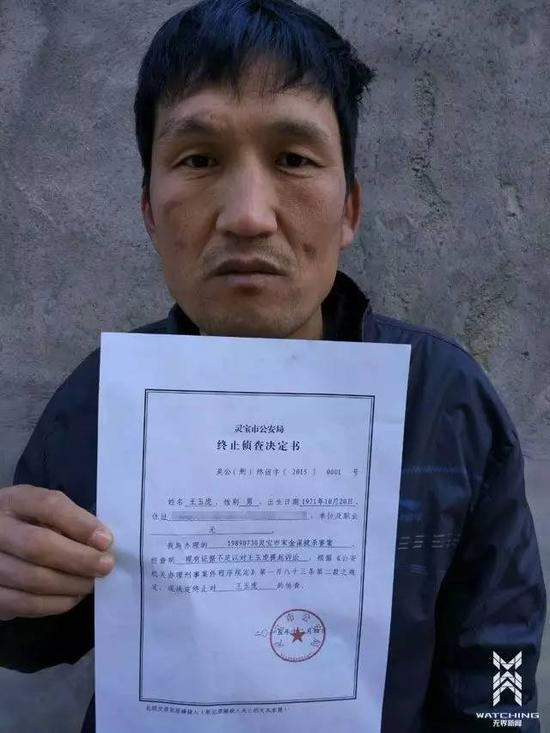 灵宝市公安局
终止侦查决定书
灵公(刑)终侦字〔2015〕0001 号
姓名 王玉虎，性别 男，出生日期1971年10月20日，
住址 单位及职业
无
我局办理的 19890730灵宝市宋金保被杀案，
经查明 现有证据不足以对王玉虎提起诉讼，根据《公安
机关办理刑事案件程序规定》第一百八十三条第二款之规
定，现决定终止对 王玉虎 的侦查。
灵宝市公安局
二〇一五年
WATCHING
无界新闻